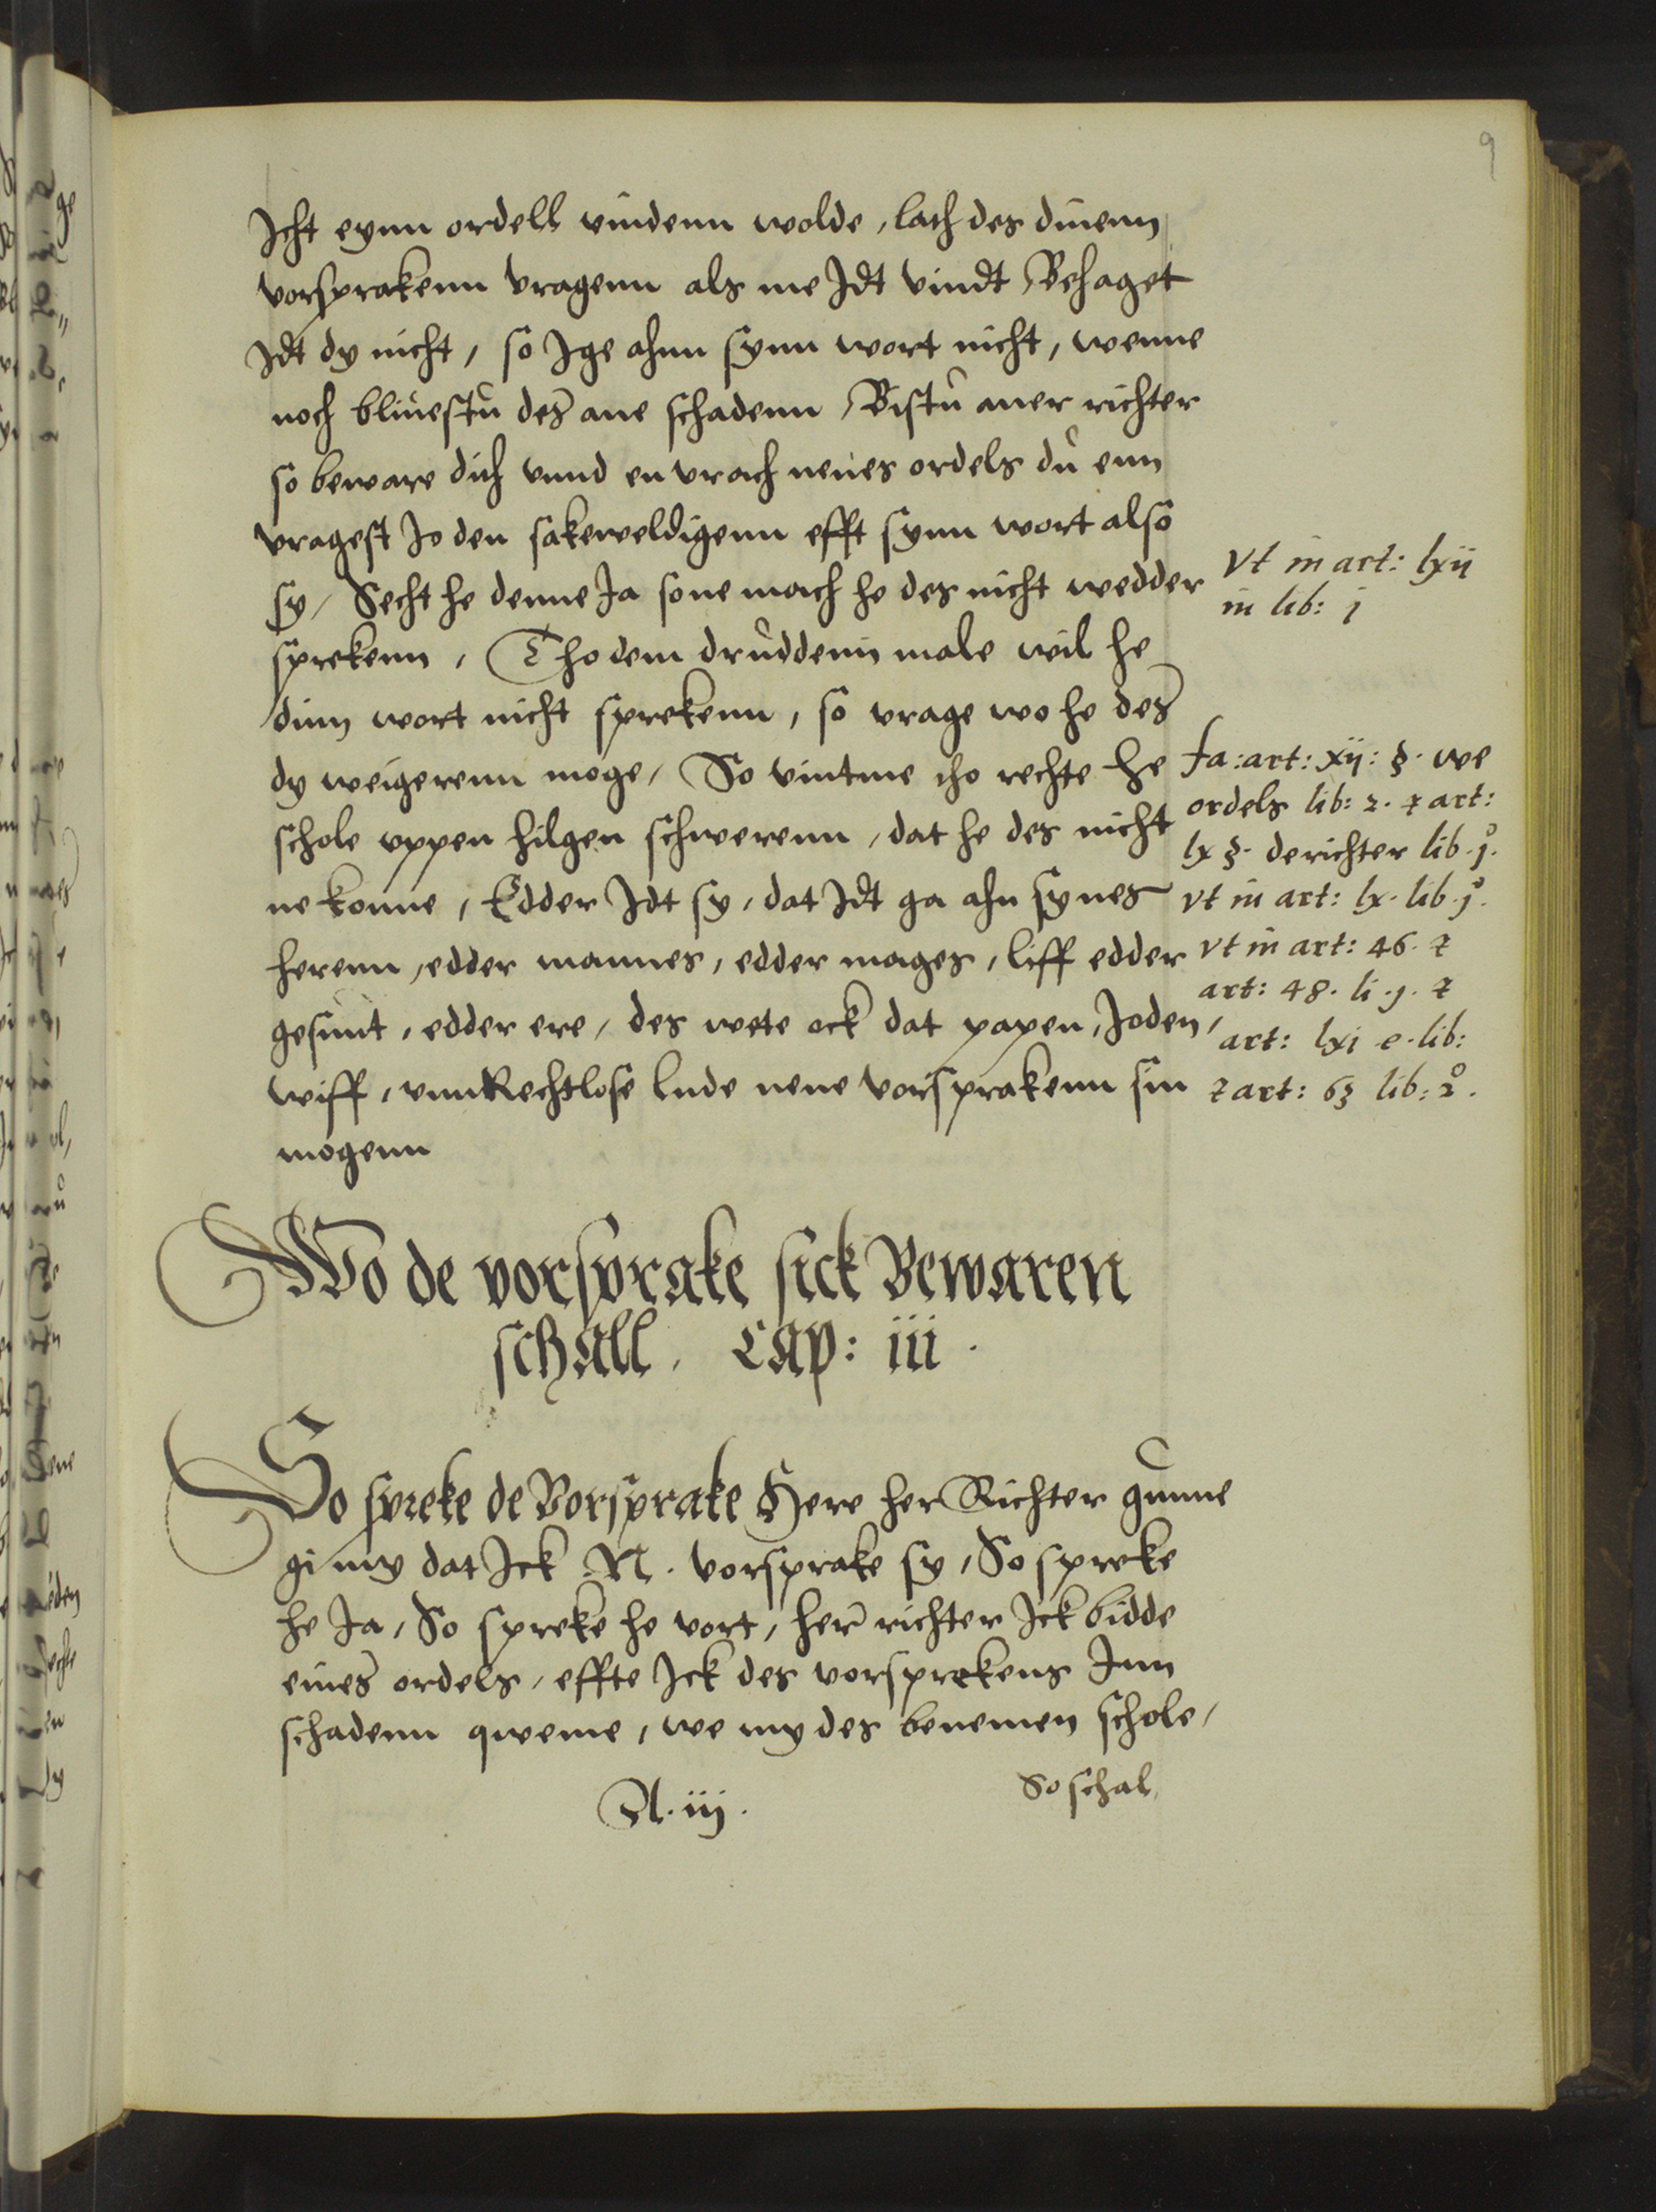 9
Icht eynn ordell vindenn wolde, lath des dinenn
vorsprakenn vragenn als me Idt vindt, Behaget
Idt dy nicht, so Ige ahnn synn wort nicht, wenne
noch bliuestu des ane schadenn, Bistu auer richter
so beware dich vnnd en vrach neues ordels du enn
vragest Jo den sakeweldigenn efft synn wort also
sy, Secht he denne Ja so ne mach he des nicht wedder
sprekenn, Tho dem druddenn male wil he
dinn wort nicht sprekenn, so vrage wo he des
dy weigerenn moge, So vintme tho rechte he
schole vppen hilgen schwerenn, dat he des nicht
ne konne, Edder Idt sy, dat Idt ga ahn synes
herenn, edder mannes, edder mages, liff edder
gesunt, edder ere, des wete ock dat papen, Joden,
wiff, vnnd Rechtlose lude nene vorsprakenn sin
mogenn
Vt in art: lxii
in lib: j
fa: art: xij: §. we
ordels lib: 2. & art:
lx §. de richter lib. jº.
vt in art: lx. lib. jº.
vt in art: 46. &
art: 48. li. j. &
art: lxi e. lib:
& art: 63 lib: 2º.
Wo de vorsprake sick Bewaren
schall, Cap: iii.
So spreke de Vorsprake Here her Richter gunne
gi my dat Ick N. vorsprake sy, So spreke
he Ja, So spreke he vort, her richter Ick bidde
eines ordels, effte Ick des vorsprekens Inn
schadenn queme, we my des benemen schole,
So schal
A. iij.